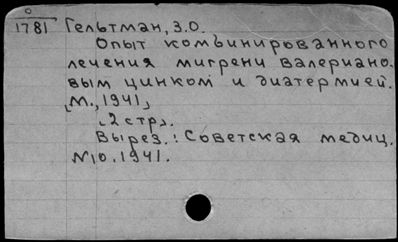 0
1781 Гельтман, З.О.
Опыт комбинированного
лечения мигрени валериано-
вым цинком и диатермией.
[М., 1941]
[2 стр].
Вырез.: Советская медиц.
№10. 1941.